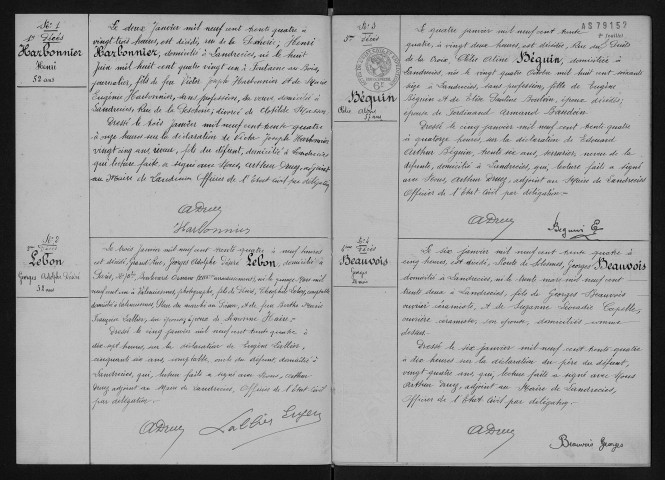 No 1
1er Décès
Harbonnier
Henri
52 ans
Le deux janvier mil neuf cent trente quatre à
vingt trois heures, est décédé, rue de la Henri
Harbonnier, domicilié à Landrecies, né le huit
juin mil huit cent quatre vingt un à Fontaine au Bois,
journalier, fils de feu Victor Joseph Harbonnier et de Marie
Eugénie sans profession, sa veuve domiciliée à
Landrecies, Rue de la divorcé de Clotilde
Dressé le trois janvier mil neuf cent trente quatre
à heures sur la déclaration de Victor Joseph Harbonnier
vingt cinq ans, fils du défunt, domicilié à Landrecies
qui lecture faite a signé avec Nous, Arthur Druy, adjoint
au Maire de Landrecies Officier de l'Etat Civil par délégation
ADruy
Harbonnier
No 2
2me Décès
Lebon
Georges Adolphe Désiré
32 ans
Le trois janvier mil neuf cent trente quatre à neuf heures
est décédé Grand'Rue, Georges Adolphe Désiré Lebon, domicilié à
Paris, Boulevard né le
neuf cent un à Valenciennes, photographe, fils de Lebon, comptable
domicilié à Valenciennes, Place du marché au et de feu Berthe Marie
Françoise Lallier, son épouse; époux de Simonne
Dressé le cinq janvier mil neuf cent trente quatre à
dix sept heures, sur la déclaration de Eugène Lallier,
cinquante six ans, comptable, oncle du défunt, domicilié à
Landrecies, qui, lecture faite a signé avec Nous, Arthur
Druy adjoint au Maire de Landrecies, Officier de l'Etat Civil
par délégation
ADruy
Lallier Eugène
No 3
3me Décès
Béguin
Célie Aline
57 ans
AS79157
Le quatre janvier mil neuf cent trente
quatre, à vingt deux heures, est décédée, Rue du Puits
de la Croix, Célie Aline Béguin, domiciliée à
Landrecies, née le vingt quatre mil huit cent soixante
seize à Landrecies, sans profession, fille de Eugène
Béguin et de Elise Pauline époux décédés;
épouse de Ferdinand Armand
Dressé le cinq janvier mil neuf cent trente quatre à
quatorze heures, sur la déclaration de Edouard
Arthur Béguin, trente six ans, neveu de la
défunte, domicilié à Landrecies, qui, lecture faite a signé
avec Nous, Arthur Druy, adjoint au Maire de Landrecies
Officier de l'Etat Civil par délégation
ADruy
Béguin E
No 4
4me Décès
Beauvois
Georges
Le six janvier mil neuf cent trente quatre à
cinq heures, est décédé, Route de Georges Beauvois
domicilié à Landrecies, né le trente mars mil neuf cent
trente deux à Landrecies, fils de Georges Beauvois
ouvrier céramiste, et de Suzanne Léocadie Capelle,
ouvrière céramiste, son épouse, domiciliés comme
dessus.
Dressé le six janvier mil neuf cent trente quatre
à dix heures sur la déclaration du père du défunt,
vingt quatre ans, qui, lecture faite a signé avec Nous
Arthur Druy, adjoint au Maire de Landrecies,
Officier de l'Etat Civil par délégation
ADruy
Beauvois Georges